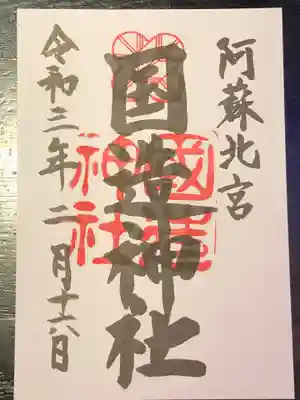 阿蘇北宮
国造神社
國造
神社
令和三年二月十六日